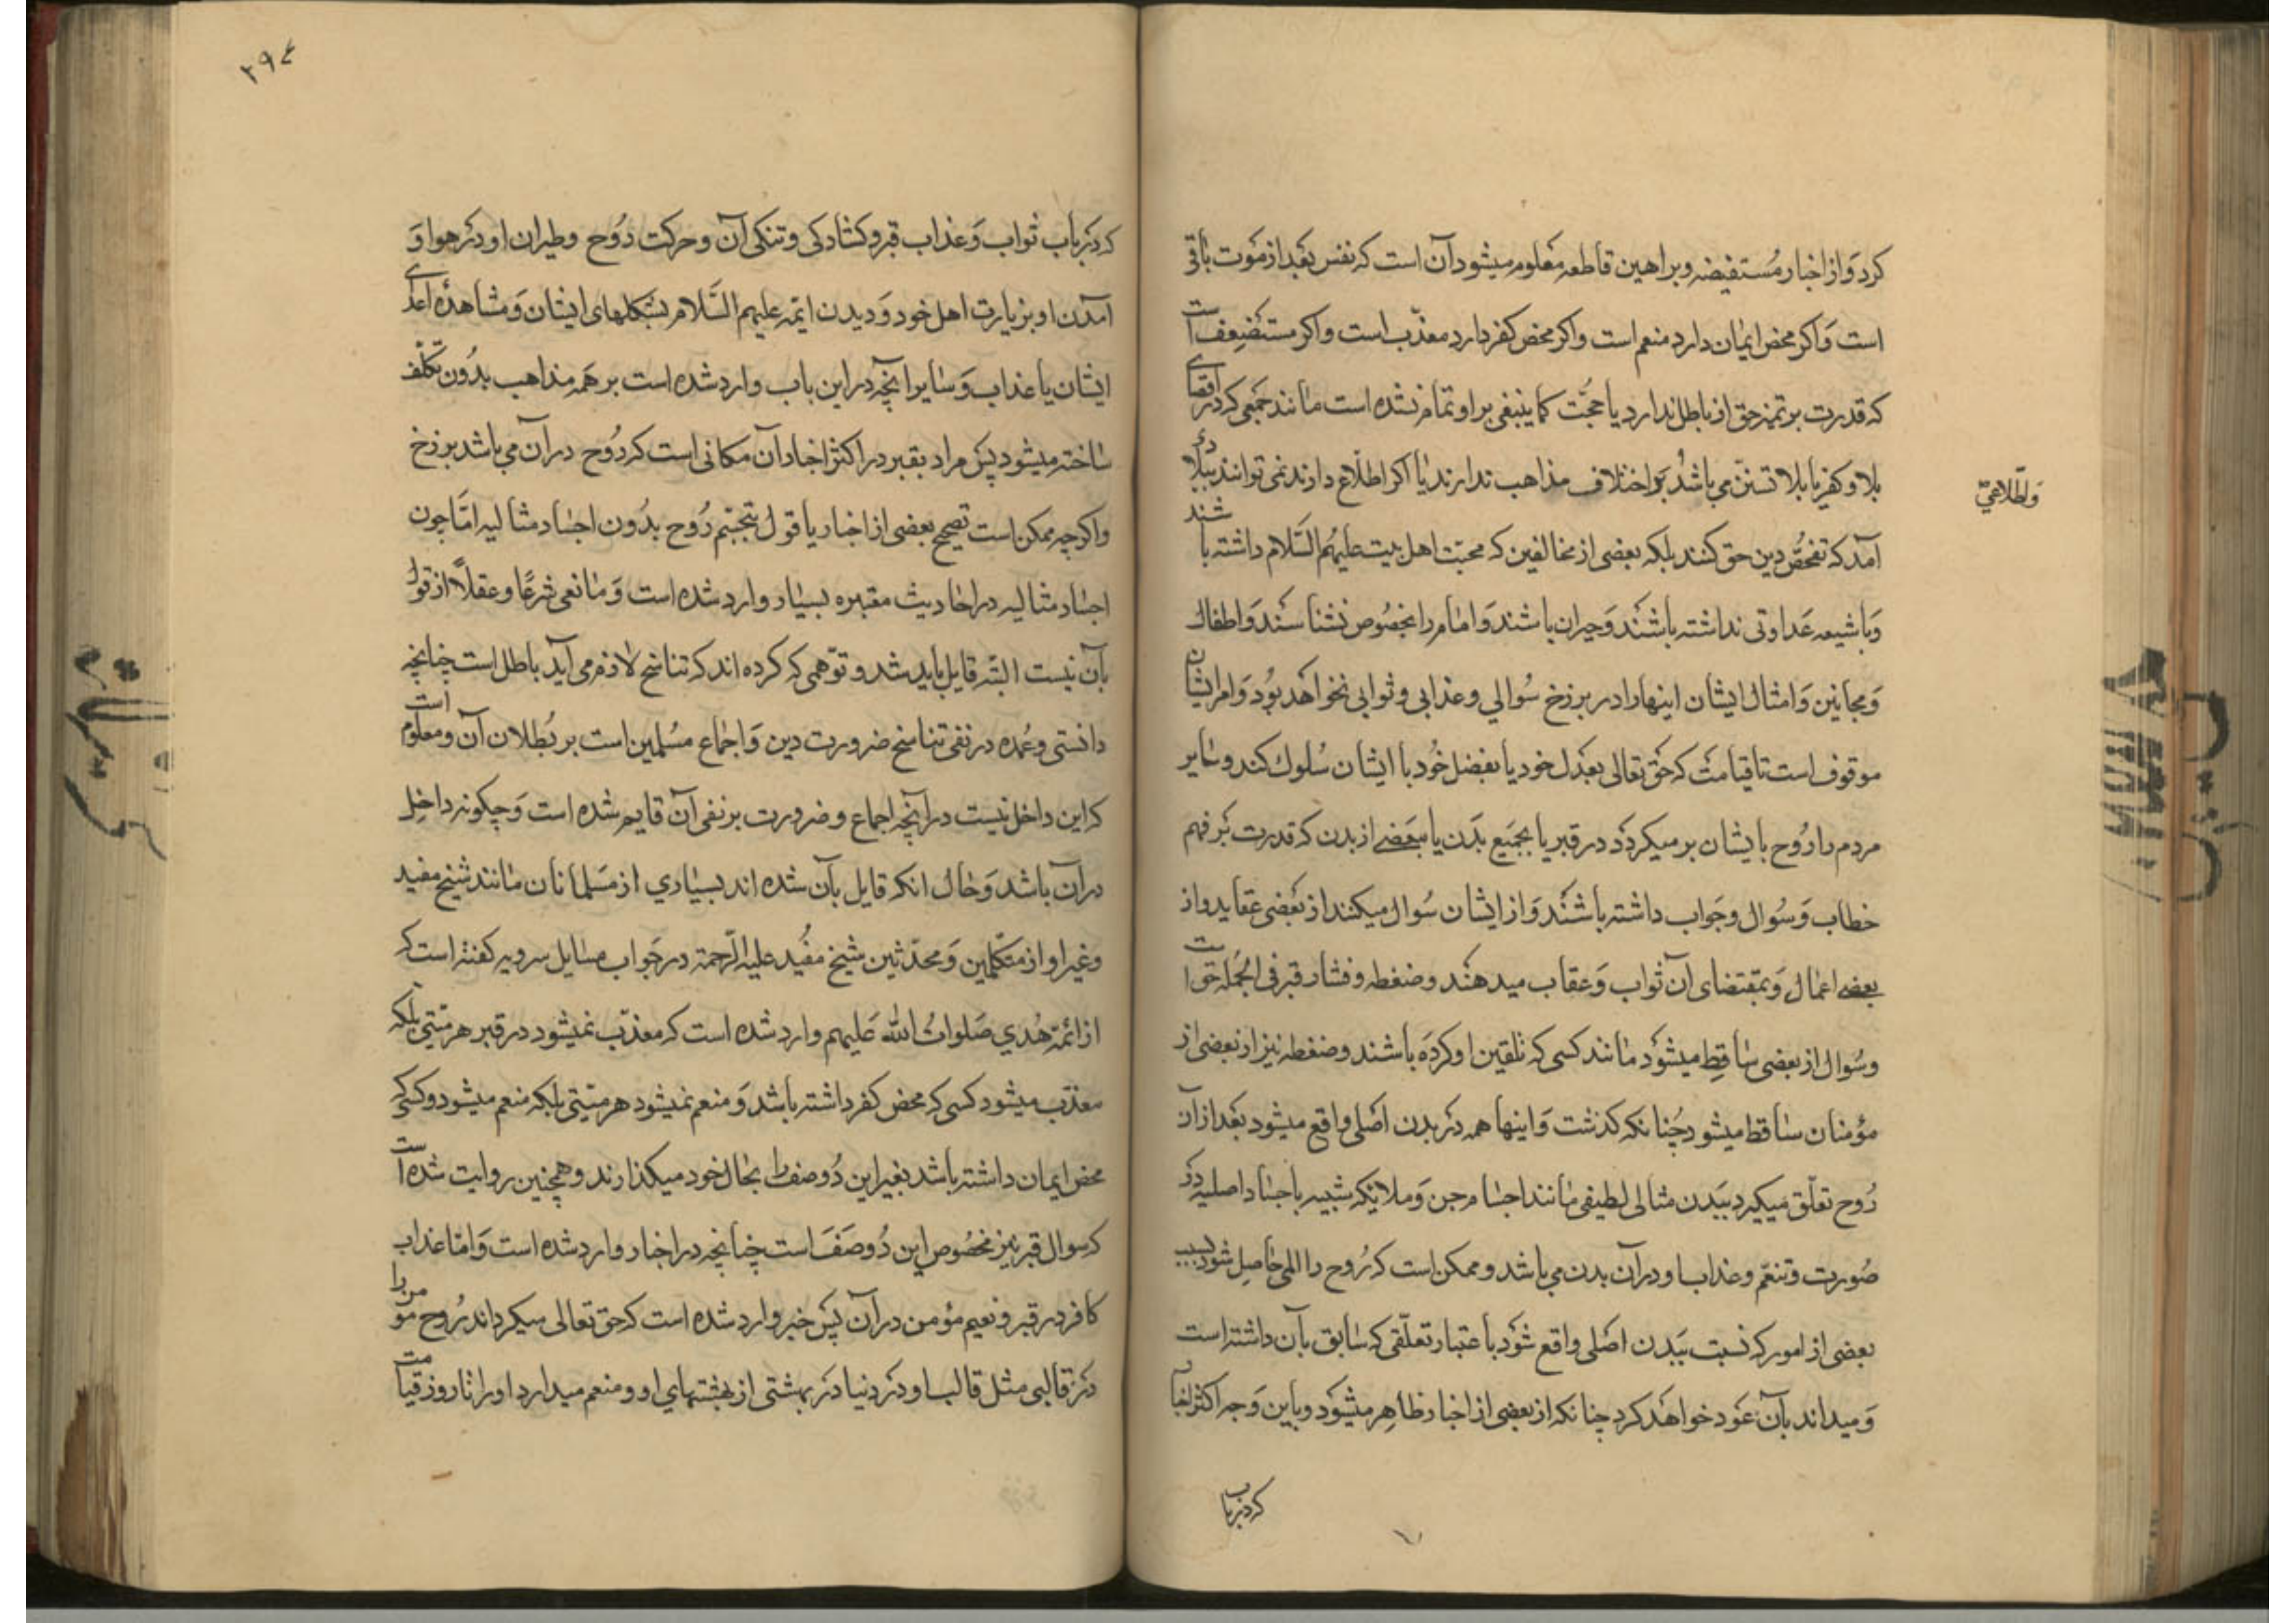 کرد وَاز اخبار مُستفیضه وبراهین قاطعه معلوم میشود آن است که نفس بعَد از مَوت باقی
است وَاکر محض ایمان دارد منعم است واکر محض کفر دارد معذّب است واکر مستضعف است
که قدرت بر تمیز حق از باطل ندارد یا حجّت کما ینبغی بر او تمام نشده است مانند جَمعی که در اقصای
بلاد کفر یا بلاد تسنّن می باشند وَاطّلاعی بر اختلاف مذاهب ندارند یا اکر اطّلاع دارند نمی توانند ببلاد
آمد که تفحّص دین حق کنند بلکه بعضی از مخالفین که محبّت اهل بیت علیهُم السَّلام داشته باشند
وَبا شیعه عَداوتی نداشته باشند وَحیران باشند وَامام را بخصُوص نشناسند وَاطفال
وَمجانین وَامثال ایشان اینها را در برزخ سُوالی وعذابی وثوابی نخواهَد بوُد وَامر ایشان
موقوف است تا قیامت که حَق تعالی بعَدل خود یا بفضل خُود با ایشان سُلوك کند وسایر
مردم را رُوح بایشان بر میکردَد در قبر یا بجَمیع بَدن یا ببَعضے از بدن که قدرت بَر فهم
خطاب وَسُوال وجَواب داشته باشنَد وَاز ایشان سُوال میکنند از بَعضی عقاید واز
بعضے اعمال وَبمقتضای آن ثواب وَعقاب میدهنَد وضغطه وفشار قبر فی الجُمله حَق است
وسُوال از بعضی ساقِط میشوَد مانند کسی که تلقین او کردَه باشند وضغطه نیز از بعضی از
مؤمنان ساقط میشود چُنانکه کذشت وَاینها همه دَر بدن اَصلی واقع میشود بعَد از آن
رُوح تعلّق میکیرد ببَدن مثالی لطیفی مانند اجسام جن وَملائکه شبیه باجساد اصلیه در
صُورت وتنعّم وعذاب او در آن بدن می باشد وممکن است که رُوح را المی حاصِل شود بسبب
بعضی از امور که نسبت ببَدن اصَلی واقع شوَد باعتبار تعلّقی که سابق بآن داشته است
وَمیداند بآن عَود خواهَد کرد چنانکه از بعضی از اخبار ظاهِر میشوَد وباین وَجه اکثر اخبار
وَاطّلاعی
که در باب
۲۹۴
که دَر باب ثواب وَعذاب قبر وکشادکی وتنکی آن وحرکت روُح وطیران او دَر هوا وَ
آمدن او بزیارت اهل خود وَدیدن ائمّه علیهم السَّلام بشکلهای ایشان وَمشاهدهٔ اعدای
ایشان یا عذاب وَسایر آنچه در این باب وارد شده است بر هَمه مذاهب بدُون تکلّف
ساخته میشود پسَ مراد بقبر در اکثر اخبار آن مکانی است که روُح در آن می باشد برزخ
واکرچه ممکن است تصحیح بعضی از اخبار یا قول بتجسّم رُوح بدُون اجساد مثالیه امّا چون
اجساد مثالیه در احادیث معتبره بسیار وارد شده است وَمانعی شرعًا وعقلاً از قول
بآن نیست البتّه قایل باید شد وتوّهمی که کرده اند که تناسخ لازم می آید باطل است چنانچه
دانستی وعُمده در نفی تناسخ ضرورت دین وَاجماع مسُلمین است بر بُطلان آن ومعلوُم است
که این داخل نیست در آنچه اجماع وضرورت بر نفی آن قایم شده است وَچکونه داخِل
در آن باشد وَحال انکه قایل بآن شده اند بسیاري از مَسلمانان مانند شیخ مفید
وغیر او از متکلّمین وَمحدّثین شیخ مفُید علیه الرّحمة در جَواب مسایل سرویه کفته است که
از ائمّة هُدي صَلوات الله عَلیهم وارد شده است که معذّب نمیشود در قبر هر میّتی بلکه
معذّب میشود کسی که محض کفر داشته باشد وَمنعم نمیشود هر میّتی بلکه منعم میشود کسی که
محض ایمان داشته باشد بغیر این دُو صنف را بحال خود میکذارند وهمچنین روایت شده است
که سوال قبر نیز مخصُوص این دُو صَنفَ است چنانچه در اخبار وارد شده است وَامّا عذاب
کافر در قبر ونعیم مؤمن در آن پسَ خبر وارد شده است که حق تعالی میکرداند رُوح مؤمن را
دَر قالبی مثل قالب او دَر دنیا دَر بهشتی از بهشتهاي او ومنعم میدارد او را تا روز قیامت